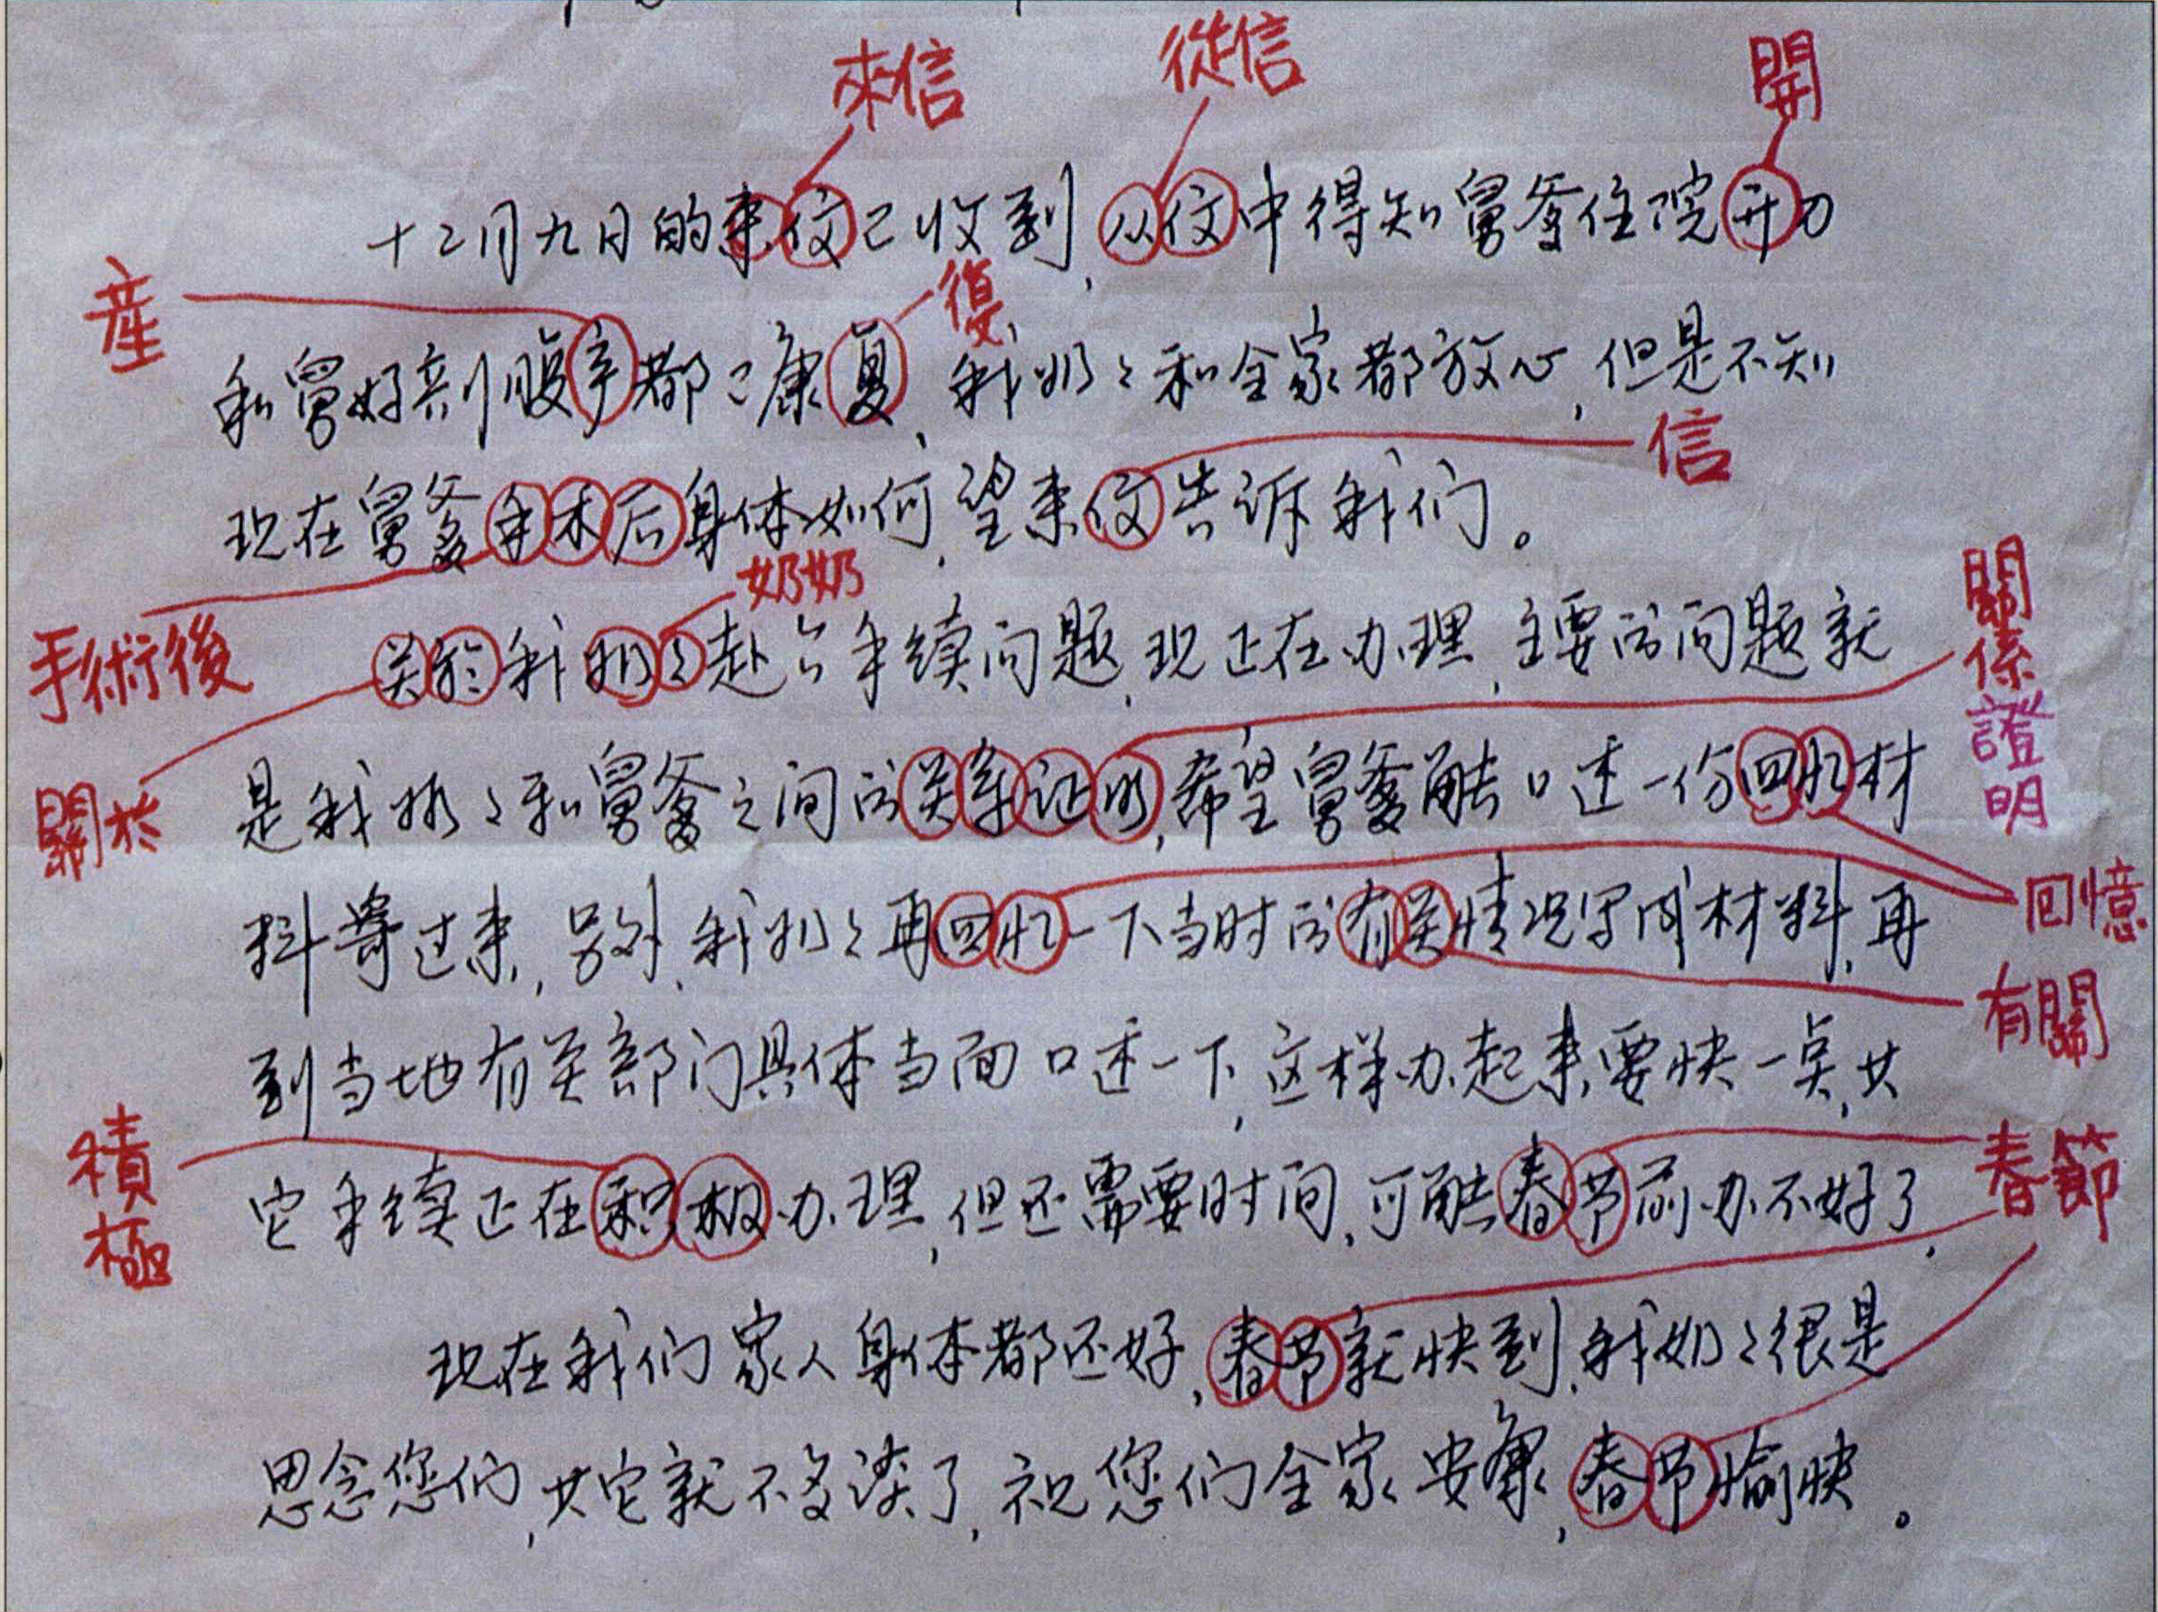 來信
從信
開
十二月九日的来伩已收到,从伩中得知舅爹住院开刀
産
復
和舅好剖腹产都已康复,我奶々和全家都放心,但是不知
信
现在舅爹手术后身体如何,望来伩告诉我们。
手術後
奶奶
关於我奶々赴台手续问题,现正在办理,主要的问题就
關於
關係
證明
是我奶々和舅爹之间的关系证明,希望舅爹能口述一份回忆材
回憶
料寄过来,另外,我奶々再回忆一下当时的有关情况写成材料,再
有關
到当地有关部门具体当面口述一下,这样办起来要快一点,其
積極
春節
它手续正在积极办理,但还需要时间,可能春节前办不好了,
现在我们家人身体都还好,春节就快到,我奶々很是
思念您们,其它就不多谈了,祝您们全家安康,春节愉快。